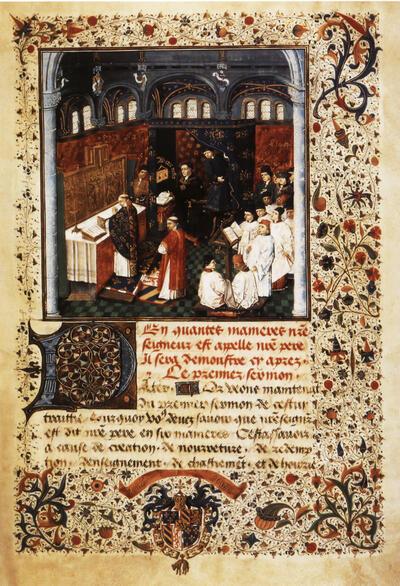 En quantes manieres nre
seigneur est apelle nre pere
il sera demonstre cy apres.
Le premier sermon.
Pater Or veons maintenāt
du premier sermon de cestui
traittie. Pour quoy vo⁹ devez savoir que nrē seignr̄
est dit nrē pere en six manieres. Cest assavoir
a cause de creation, de nourreture, de redemp
tion, denseignement, de chastiemēt, et de